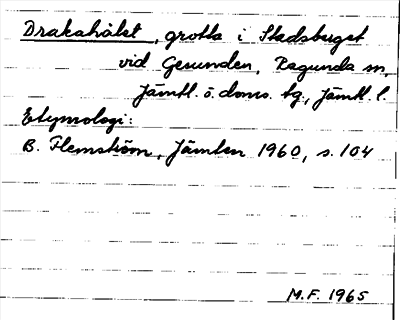 Drakahålet, grotta i Stadsberget
vid Gesunden, Ragunda sn,
Jämtl. ö. doms. tg., Jämtl. l.
Etymologi:
B. Flemström, Jämten 1960, s. 104
M.F. 1965